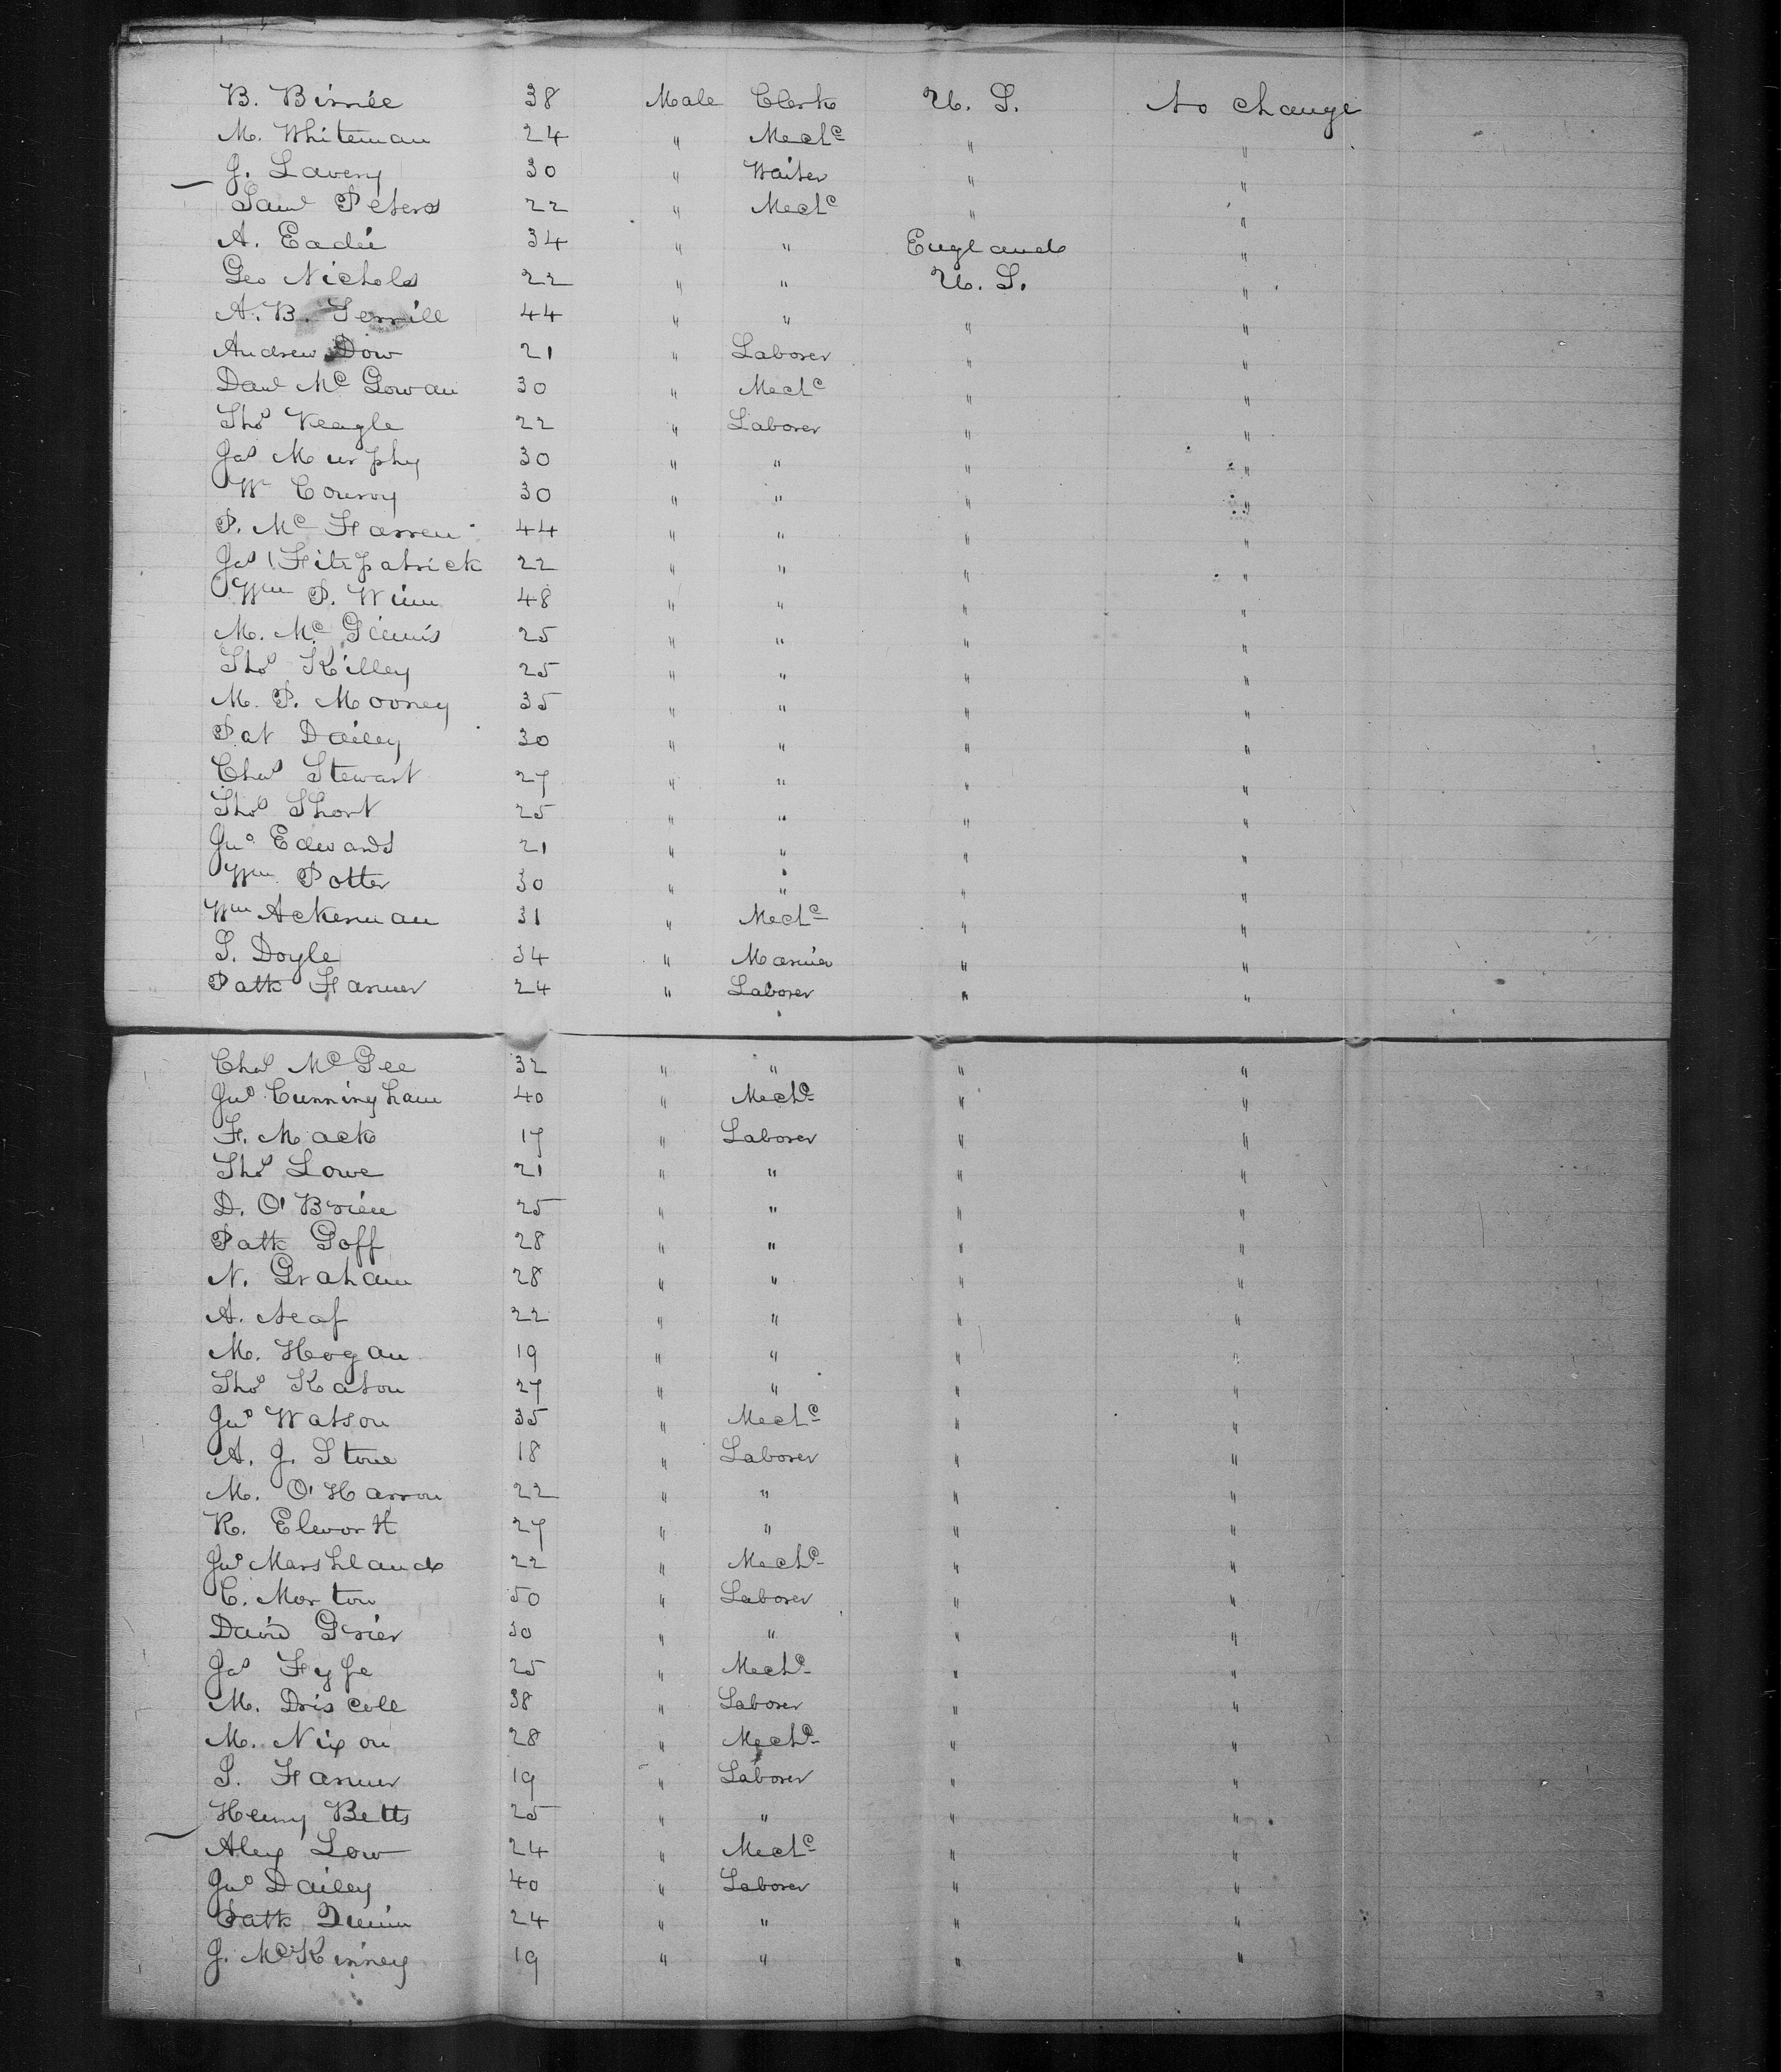 B. Birnie 38 Male Clerk U. S. No change
M. Whiteman 24 " Mechc " "
J. Lavery 30 " Waiter " "
Saml Peters 22 " Mechc " "
A. Eadie 34 " " England "
Geo Nichols 22 " " U. S. "
A. B. Terrill 44 " " " "
Andrew Dow 21 " Laborer " "
Danl Mc Gowan 30 " Mechc " "
Thos Veagle 22 " Laborer " "
Jas Murphy 30 " " " "
W Conroy 30 " " " "
P. Mc Farren 44 " " " "
Jas Fitzpatrick 22 " " " "
Wm P. Winn 48 " " " "
M. Mc Ginnis 25 " " " "
Thos Killey 25 " " " "
M. P. Mooney 35 " " " "
Pat Dailey 30 " " " "
Chas Stewart 27 " " " "
Thos Short 25 " " " "
Jno Edwards 21 " " " "
Wm Potter 30 " " " "
Wm Ackerman 31 " Mechc " "
S. Doyle 34 " Marine " "
Patk Farmer 24 " Laborer " "
Chas Mc Gee 32 " " " "
Jno Cunningham 40 " Mechc " "
F. Mack 17 " Laborer " "
Thos Lowe 21 " " " "
D. O'Brien 25 " " " "
Patk Goff 28 " " " "
N. Graham 28 " " " "
A. Neaf 22 " " " "
M. Hogan 19 " " " "
Thos Katon 27 " " " "
Jno Watson 35 " Mechc " "
A. J. Stone 18 " Laborer " "
M. O'Harron 22 " " " "
R. Elworth 27 " " " "
Jno Marshland 22 " Mechc " "
C. Morton 50 " Laborer " "
David Grier 30 " " " "
Jas Fyfe 25 " Mechc " "
M. Driscoll 38 " Laborer " "
M. Nixon 28 " Mechc " "
S. Farmer 19 " Laborer " "
Henry Betts 25 " " " "
Alex Low 24 " Mechc " "
Jno Dailey 40 " Laborer " "
Patk Dunn 24 " " " "
J. McKinney 19 " " " "